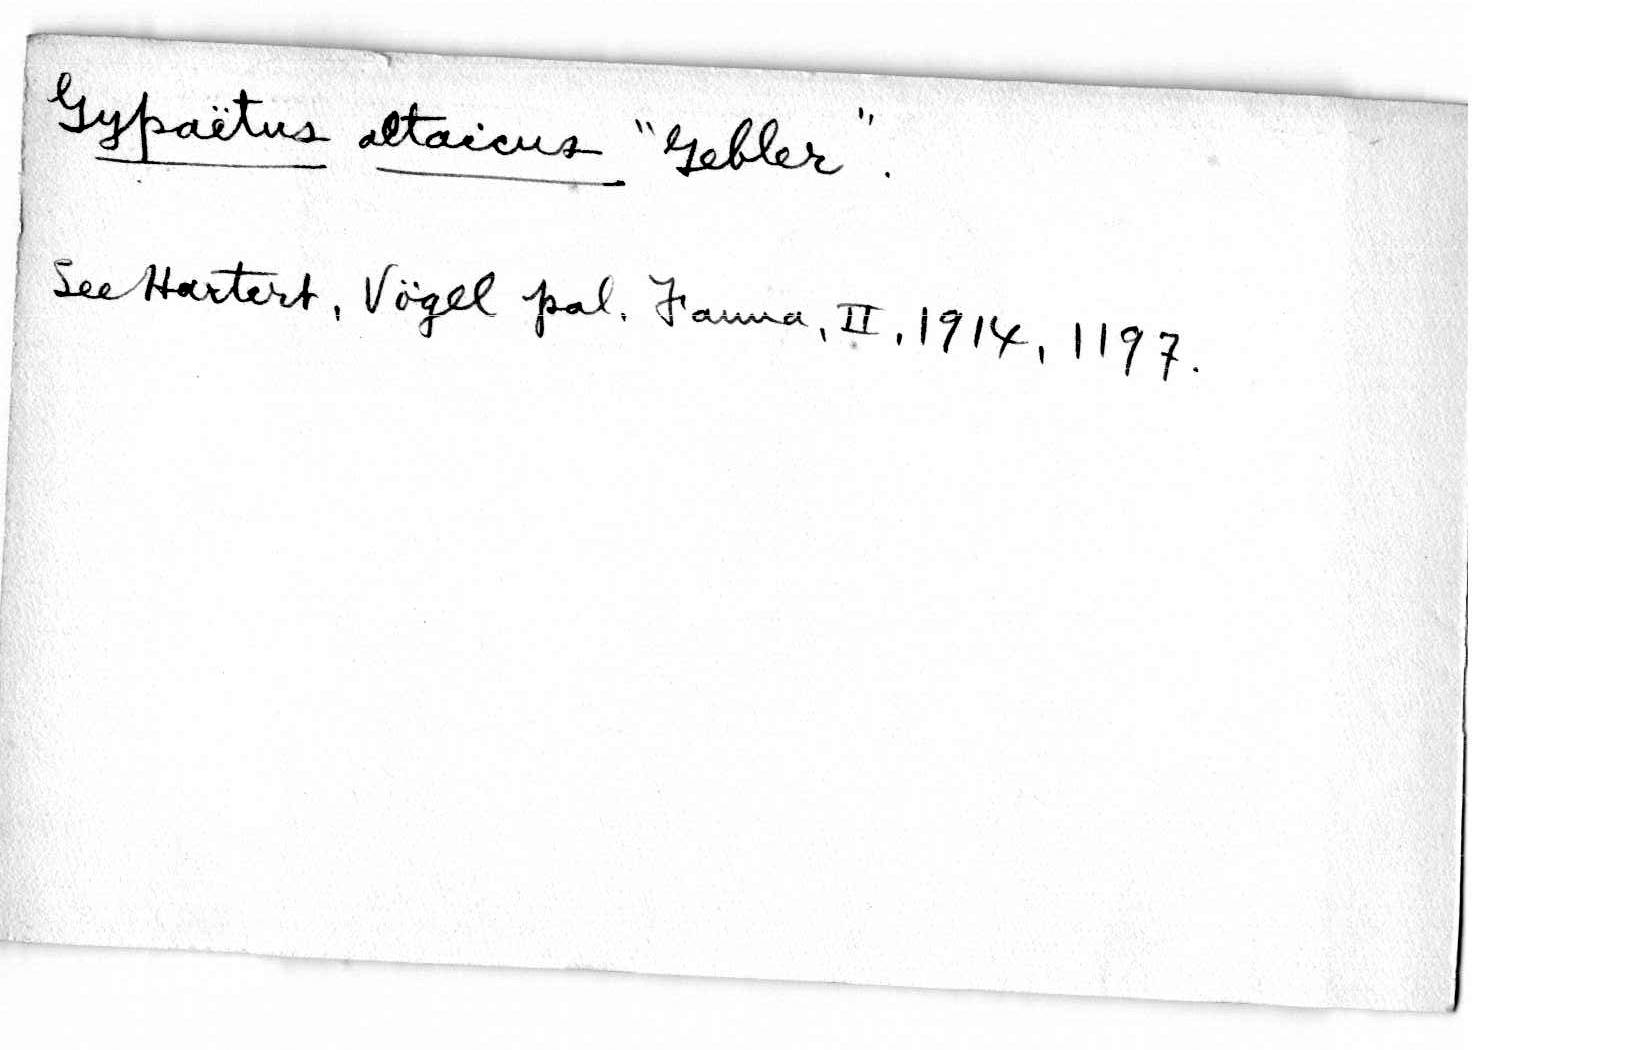 Gypaëtus altaicus "Gebler".
See Hartert, Vögel pal. Fauna, II, 1914, 1197.